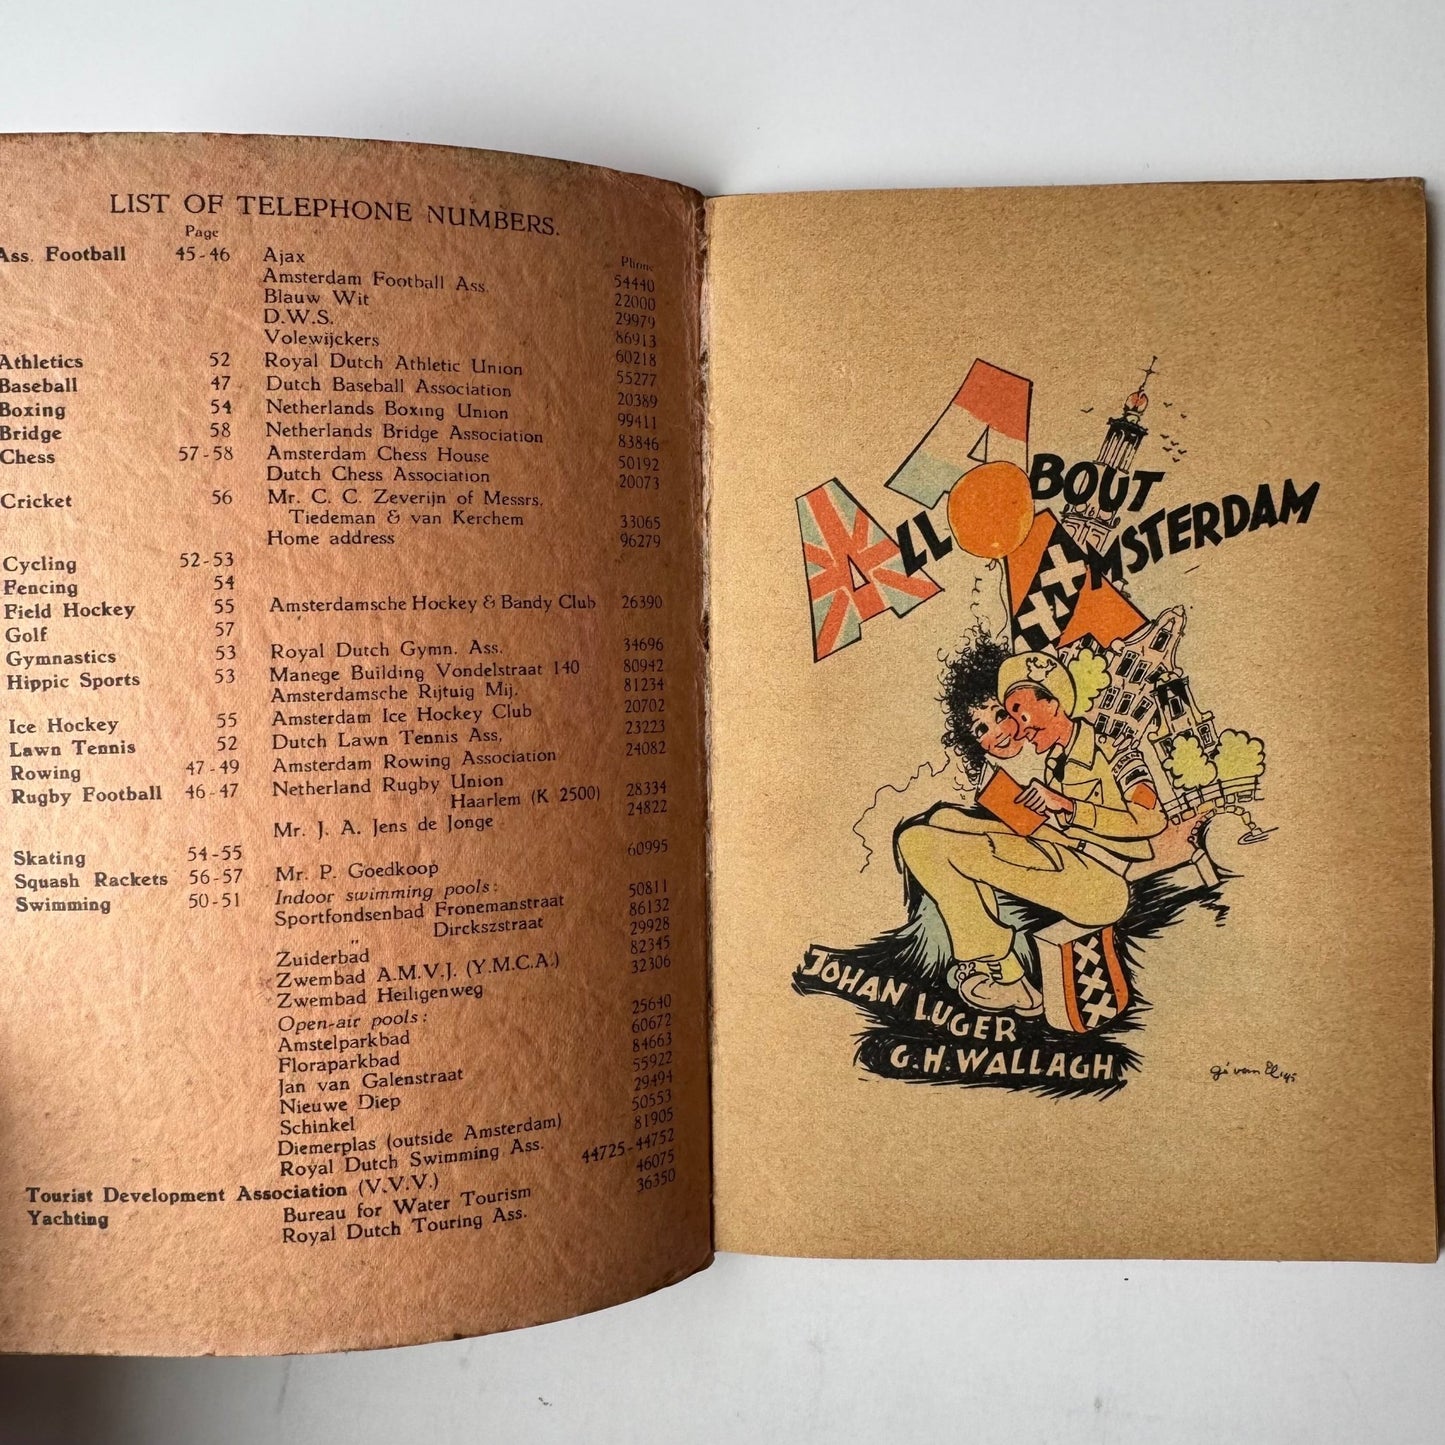 LIST OF TELEPHONE NUMBERS.
Page Phone
Ass. Football 45-46 Ajax 54440
Amsterdam Football Ass. 22000
Blauw Wit 29979
D.W.S. 86913
Volewijckers 60218
Athletics 52 Royal Dutch Athletic Union 55277
Baseball 47 Dutch Baseball Association 20389
Boxing 54 Netherlands Boxing Union 99411
Bridge 58 Netherlands Bridge Association 83846
Chess 57-58 Amsterdam Chess House 50192
Dutch Chess Association 20073
Cricket 56 Mr. C. C. Zeverijn of Messrs.
Tiedeman & van Kerchem 33065
Home address 96279
Cycling 52-53
Fencing 54
Field Hockey 55 Amsterdamsche Hockey & Bandy Club 26390
Golf 57
Gymnastics 53 Royal Dutch Gymn. Ass. 34696
Hippic Sports 53 Manege Building Vondelstraat 140 80942
Amsterdamsche Rijtuig Mij. 81234
Ice Hockey 55 Amsterdam Ice Hockey Club 20702
Lawn Tennis 52 Dutch Lawn Tennis Ass. 23223
Rowing 47-49 Amsterdam Rowing Association 24082
Rugby Football 46-47 Netherland Rugby Union
Haarlem (K 2500) 28334
Mr. J. A. Jens de Jonge 24822
Skating 54-55
Squash Rackets 56-57 Mr. P. Goedkoop 60995
Swimming 50-51 Indoor swimming pools:
Sportfondsenbad Fronemanstraat 50811
Dirckszstraat 86132
Zuiderbad 29928
Zwembad A.M.V.J. (Y.M.C.A.) 82345
Zwembad Heiligenweg 32306
Open-air pools:
Amstelparkbad 25640
Floraparkbad 60672
Jan van Galenstraat 84663
Nieuwe Diep 55922
Schinkel 29494
Diemerplas (outside Amsterdam) 50553
Royal Dutch Swimming Ass. 81905
Tourist Development Association (V.V.V.) 44725-44752
Yachting Bureau for Water Tourism 46075
Royal Dutch Touring Ass. 36350
ALL
ABOUT
AMSTERDAM
JOHAN LUGER
G.H. WALLAGH